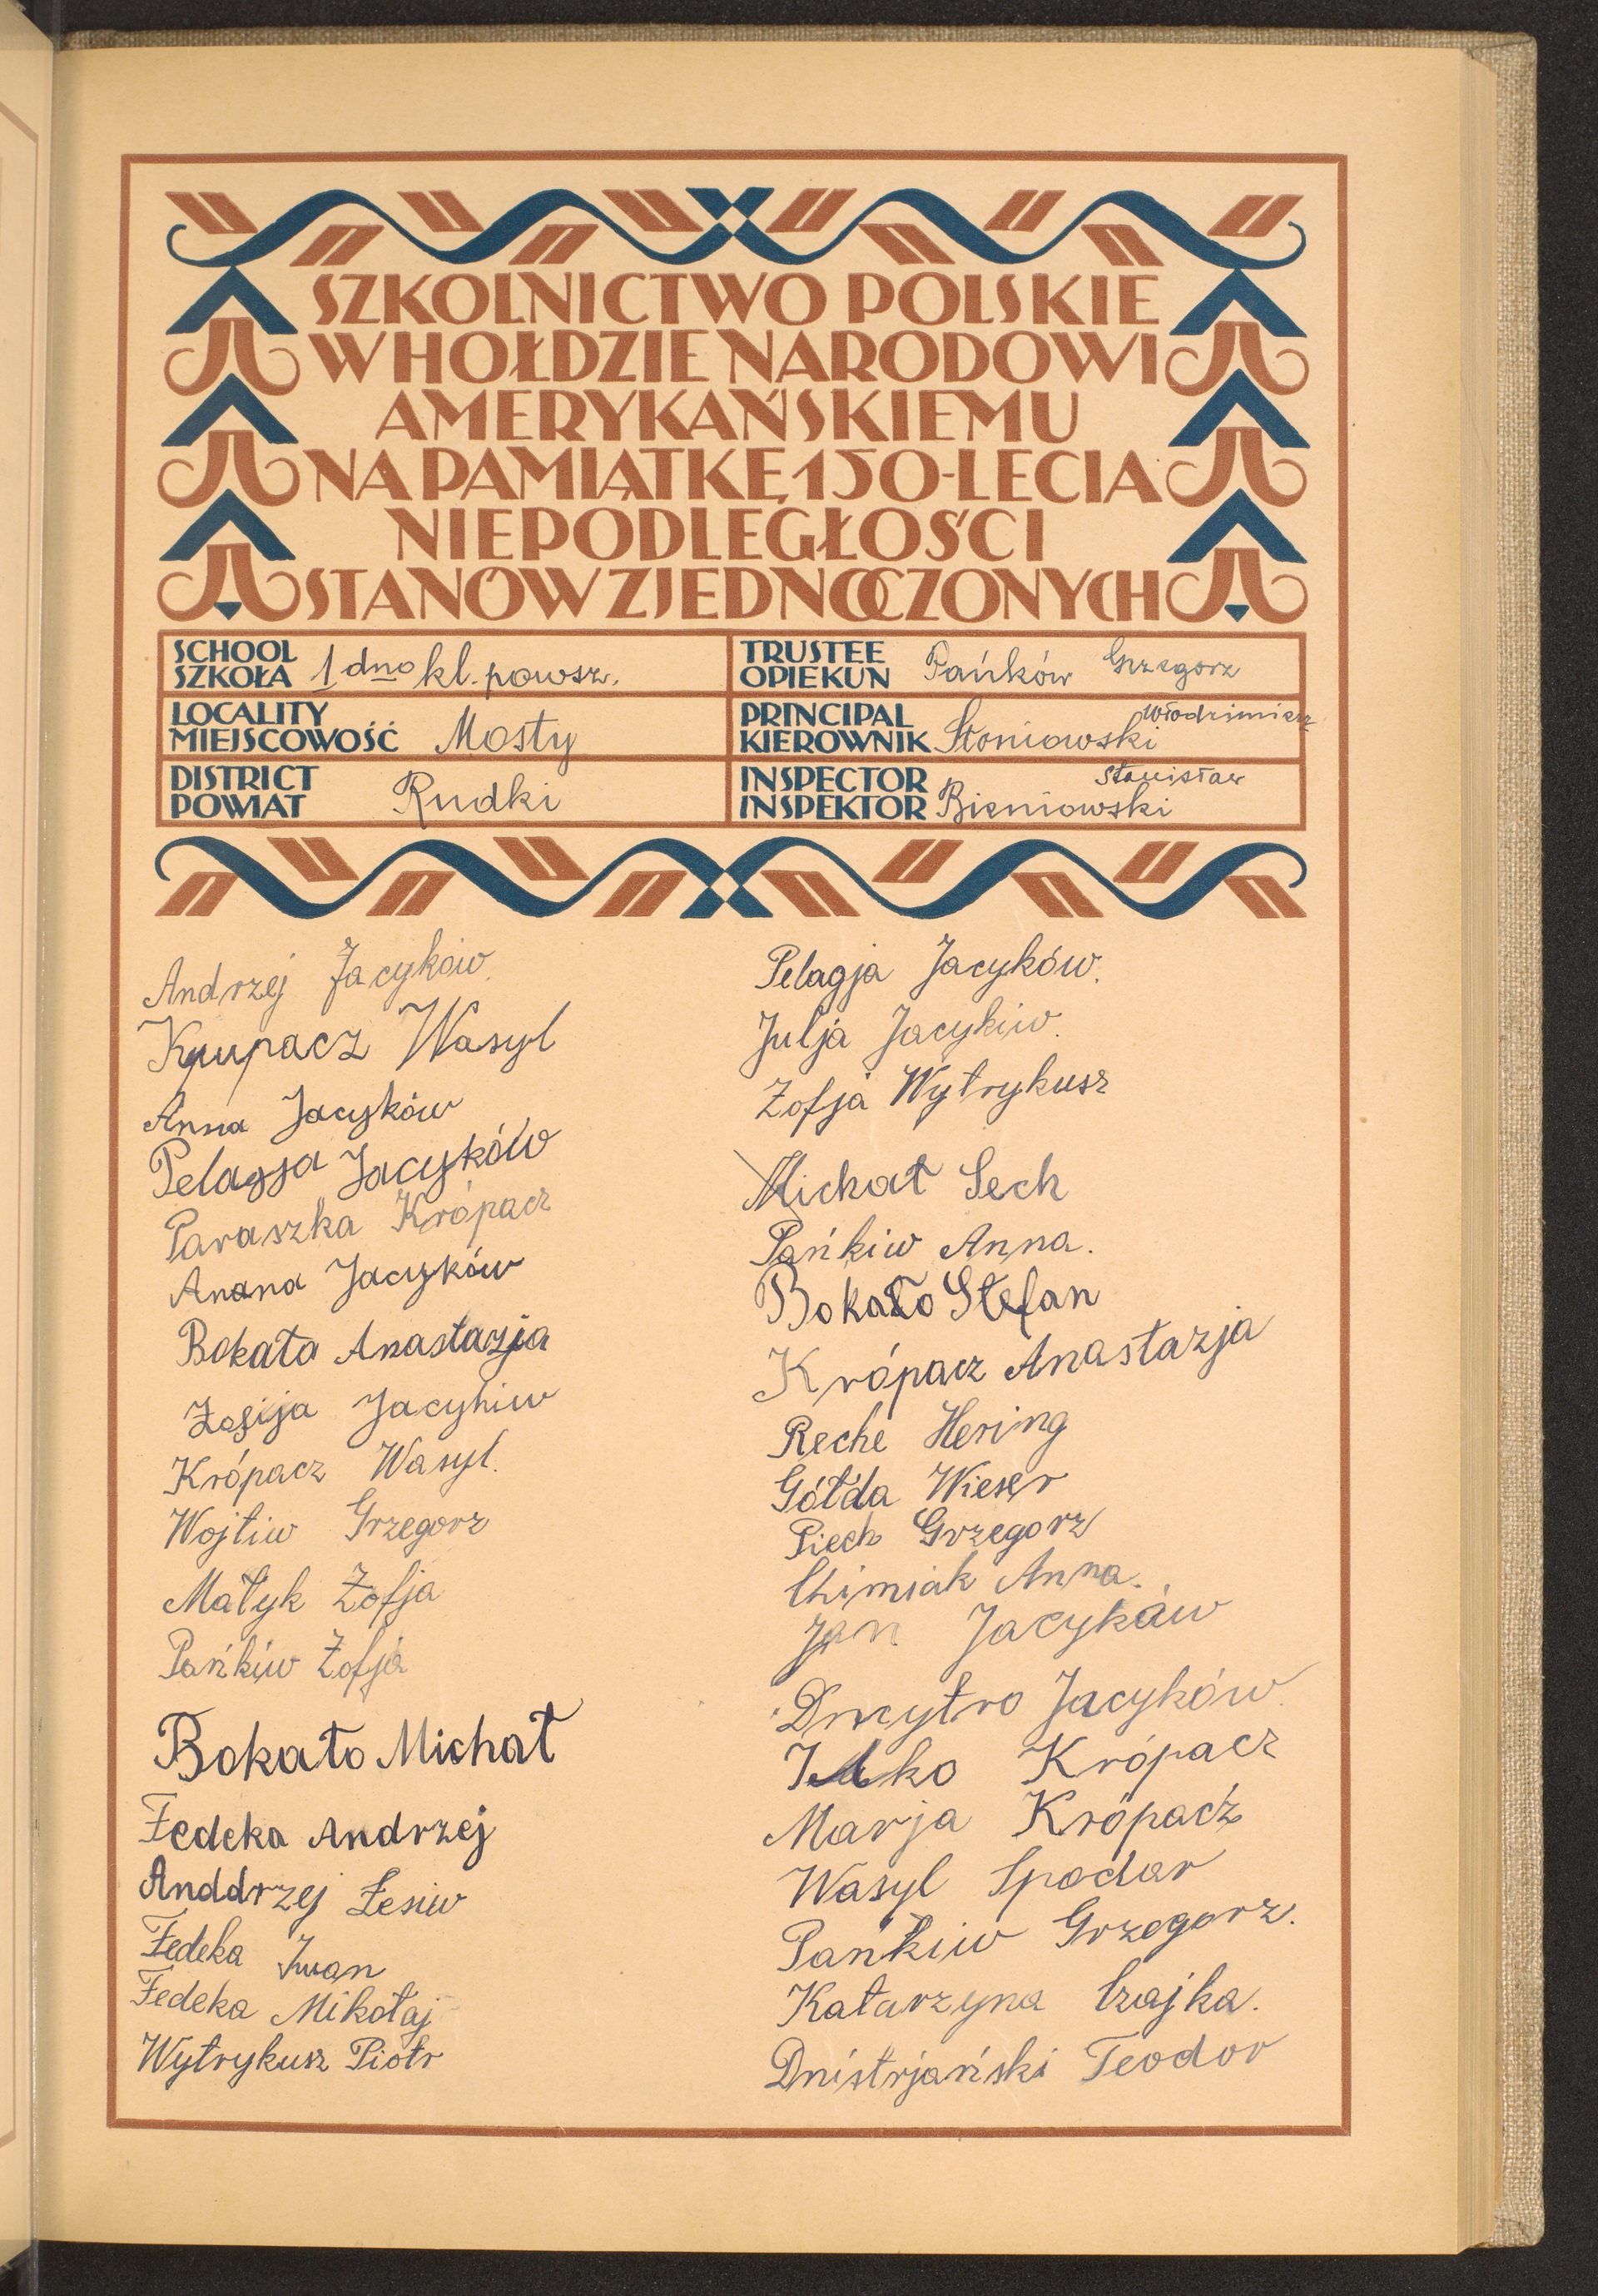 SZKOLNICTWO POLSKIE
W HOŁDZIE NARODOWI
AMERYKAŃSKIEMU
NA PAMIĄTKĘ 150-LECIA
NIEPODLEGŁOŚCI
STANÓW ZJEDNOCZONYCH
SCHOOL
SZKOŁA 1 dno kl. powsz.
TRUSTEE
OPIEKUN Pańków Grzegorz
LOCALITY
MIEJSCOWOŚĆ Mosty
PRINCIPAL Włodzimierz
KIEROWNIK Słoniowski
DISTRICT
POWIAT Rudki
INSPECTOR Stanisław
INSPEKTOR Bieniowski
Andrzej Jacyków.
Krupacz Wasyl
Anna Jacyków
Pelagja Jacyków
Paraszka Krópacz
Anana Jacyków
Bokało Anastazja
Zofija Jacykiw
Krópacz Wasyl.
Wojtiw Grzegorz
Małyk Zofja
Pańkiw Zofja
Bokało Michał
Fedeka Andrzej
Anddrzej Łesiw
Fedeka Iwan
Fedeka Mikołaj
Wytrykusz Piotr
Pelagja Jacyków.
Julja Jacykiw.
Zofja Wytrykusz
Michał Sech
Pańkiw Anna.
Bokało Stefan
Krópacz Anastazja
Reche Hering
Gółda Wieser
Piech Grzegorz
Chimiak Anna.
Jan Jacyków
Dmytro Jacyków.
Krópacz
Marja Krópacz
Wasyl Spodar
Pańkiw Grzegorz.
Katarzyna Czajka.
Dnistrjański Teodor